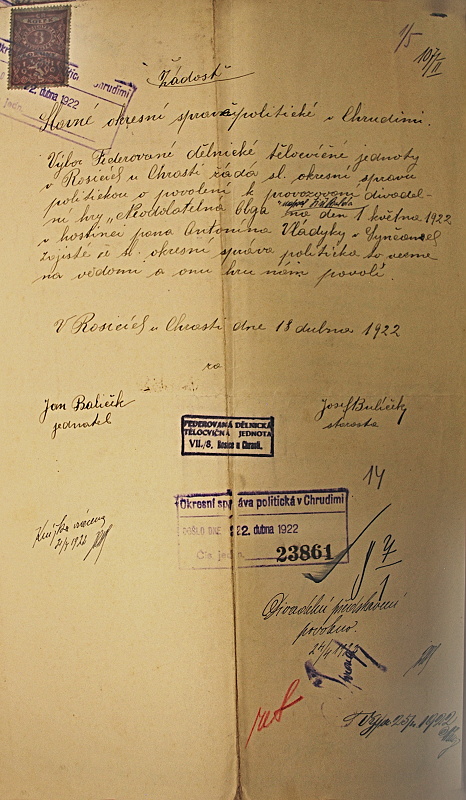 1/5
Žádost
Slavné okresní správě politické v Chrudimi.
Výbor Federované dělnické tělocvičné jednoty
v Rosicích u Chrasti žádá sl. okresní správu
politickou o povolení k provozování divadel-
ní hry „Neodolatelná Olga na den 1 května 1922
v hostinci pana Antonína Vládyky v Synčanech
Zajisté že sl. okresní správa politická to vezme
na vědomí a onu hru nám povolí.
V Rosicích u Chrasti dne 18 dubna 1922
za
Jan Balíček
jednatel
Josef Bulíček
starosta
FEDEROVANÁ DĚLNICKÁ
TĚLOCVIČNÁ JEDNOTA
VII./8, Rosice u Chrasti.
14
Okresní správa politická v Chrudimi
DOŠLO DNE 22. dubna 1922
Čís. jedn. 23861
7
1
Knížka vrácena
Divadelní představení
povoleno.